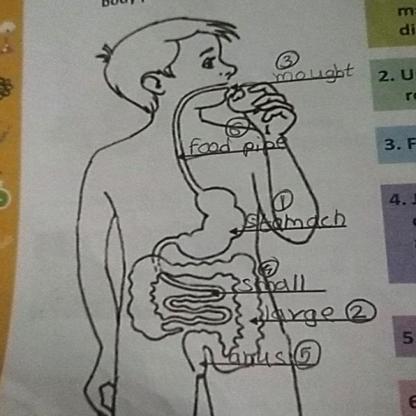 ③
mought
⑥
food pipe
①
stomach
④
small
large ②
anus ⑤
2. U
3. F
4.
5
6